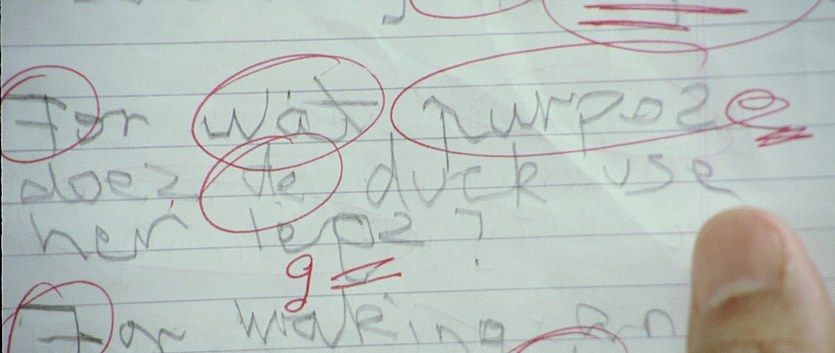 For wat purpoze
doez de duck use
her legz?
g
For walking an